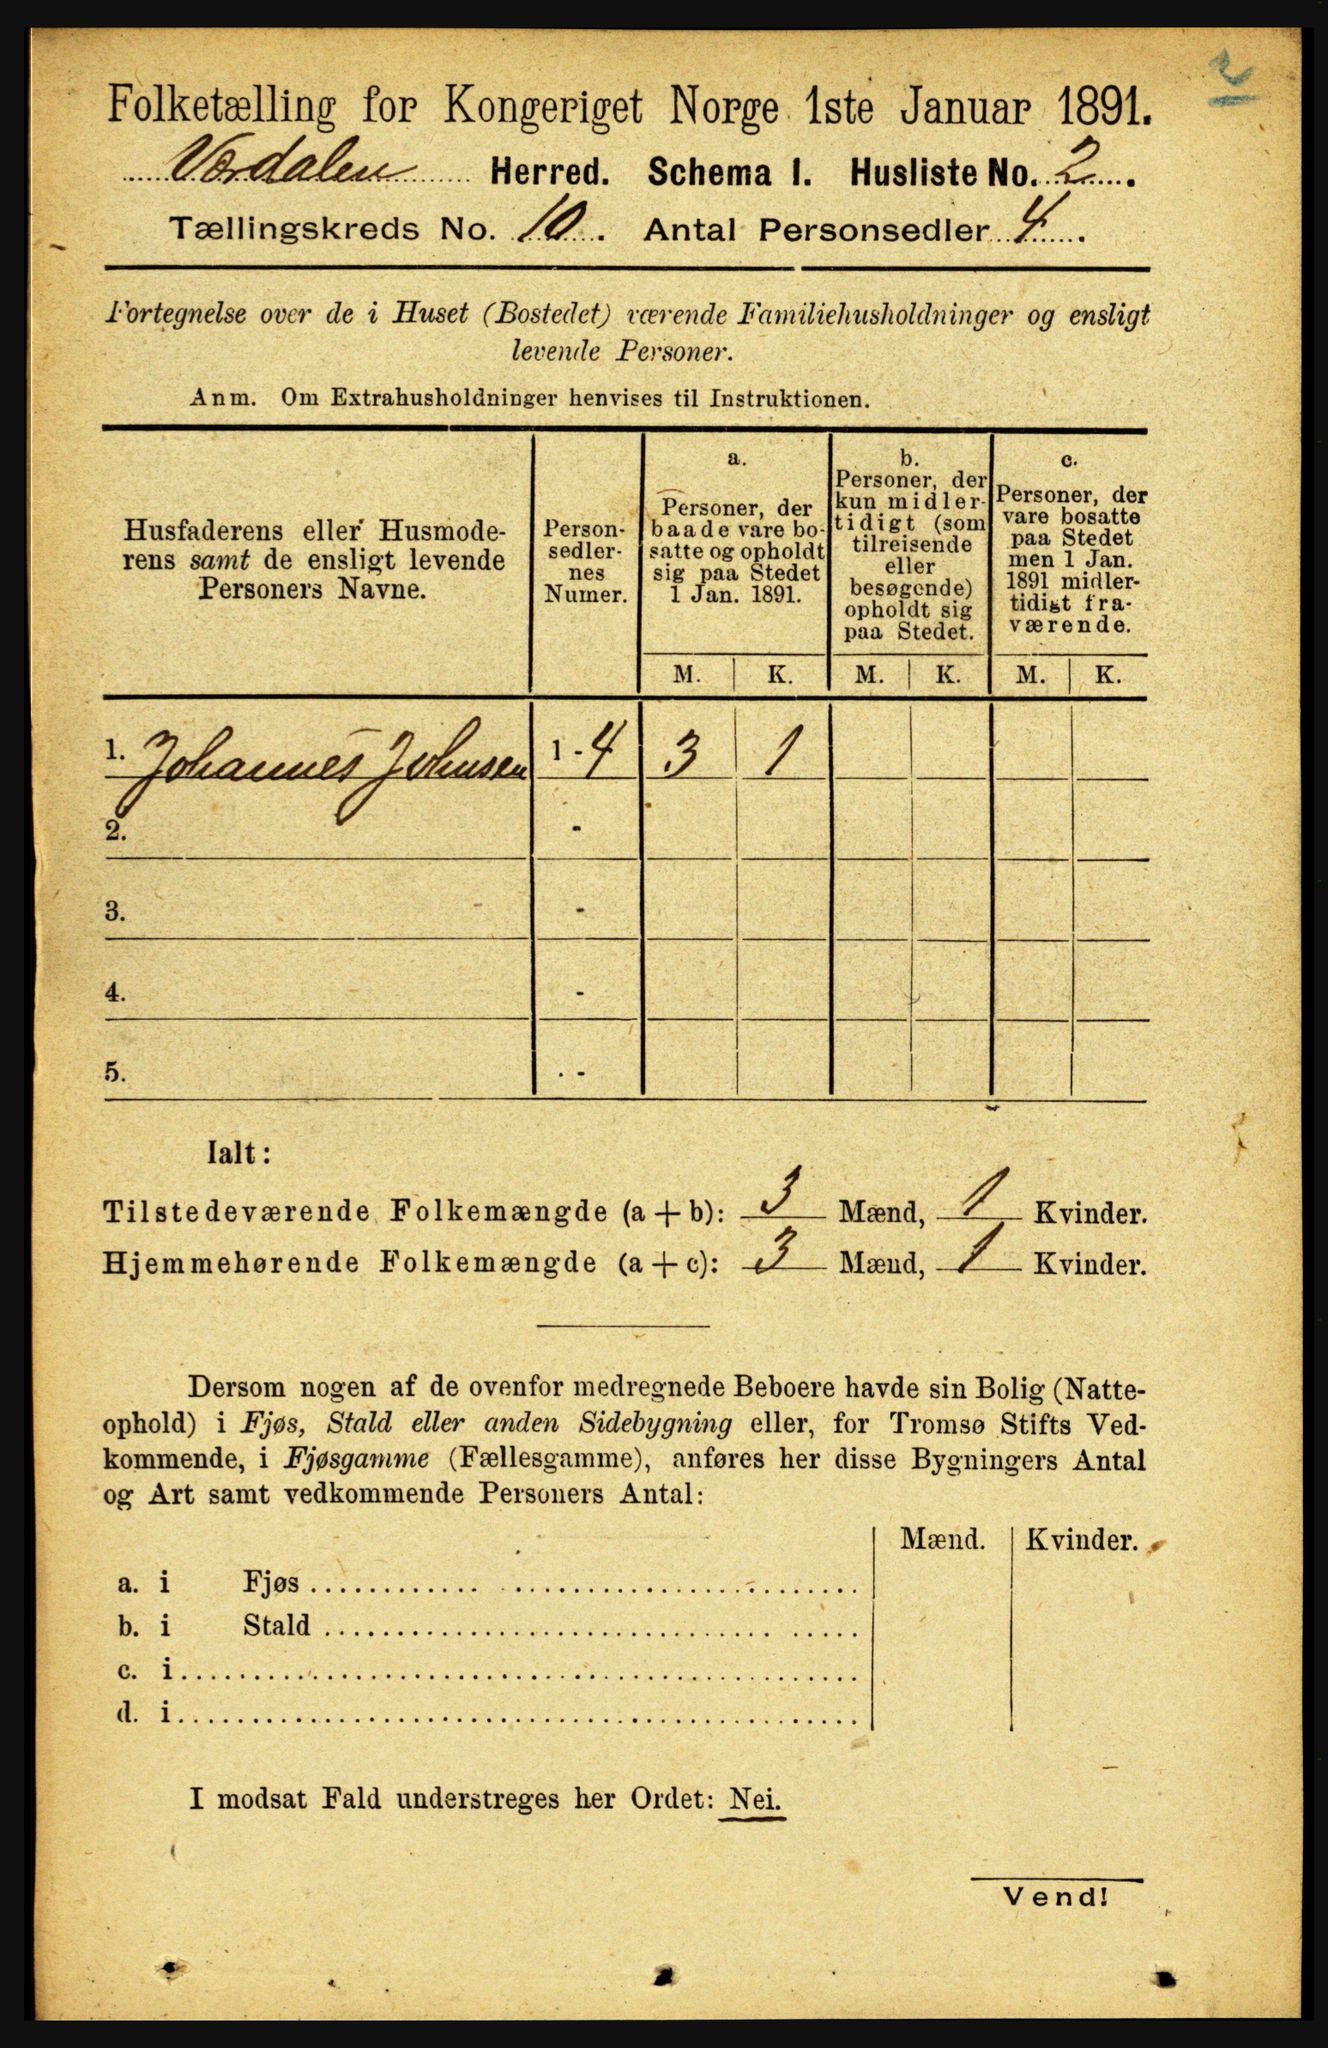 2
Folketælling for Kongeriget Norge 1ste Januar 1891.
Værdalen Herred. Schema 1. Husliste No. 2.
Tællingskreds No. 10. Antal Personsedler 4.
Fortegnelse over de i Huset (Bostedet) værende Familiehusholdninger og ensligt
levende Personer.
Anm. Om Extrahusholdninger henvises til Instruktionen.
Husfaderens eller Husmode-
rens samt de ensligt levende
Personers Navne.
Person-
sedler-
nes
Numer.
a.
Personer, der
baade vare bo-
satte og opholdt
sig paa Stedet
1 Jan. 1891.
b.
Personer, der
kun midler-
tidigt (som
tilreisende
eller
besøgende)
opholdt sig
paa Stedet.
c.
Personer, der
vare bosatte
paa Stedet
men 1 Jan.
1891 midler-
tidigt fra-
værende.
M. K. M. K. M. K.
1. Johannes Johnsen 1 - 4 3 1
2. -
3. -
4. -
5. -
Ialt:
Tilstedeværende Folkemængde (a + b): 3 Mænd, 1 Kvinder.
Hjemmehørende Folkemængde (a + c): 3 Mænd, 1 Kvinder.
Dersom nogen af de ovenfor medregnede Beboere havde sin Bolig (Natte-
ophold) i Fjøs, Stald eller anden Sidebygning eller, for Tromsø Stifts Ved-
kommende, i Fjøsgamme (Fællesgamme), anføres her disse Bygningers Antal
og Art samt vedkommende Personers Antal:
Mænd. Kvinder.
a. i Fjøs
b. i Stald
c. i
d. i
I modsat Fald understreges her Ordet: Nei.
Vend!